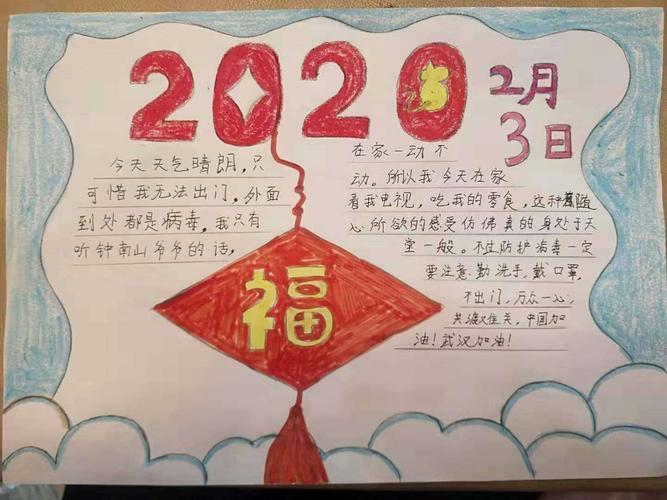 2020
2月
3日
今天天气晴朗,只
可惜我无法出门,外面
到处都是病毒,我只有
听钟南山爷爷的话,
在家一动不
动。所以我今天在家
看我电视,吃我的零食,这种随
心所欲的感受仿佛真的身处于天
堂一般。不过防护病毒一定
要注意:勤洗手,戴口罩,
不出门,万众一心,
共渡难关,中国加
油!武汉加油!
福